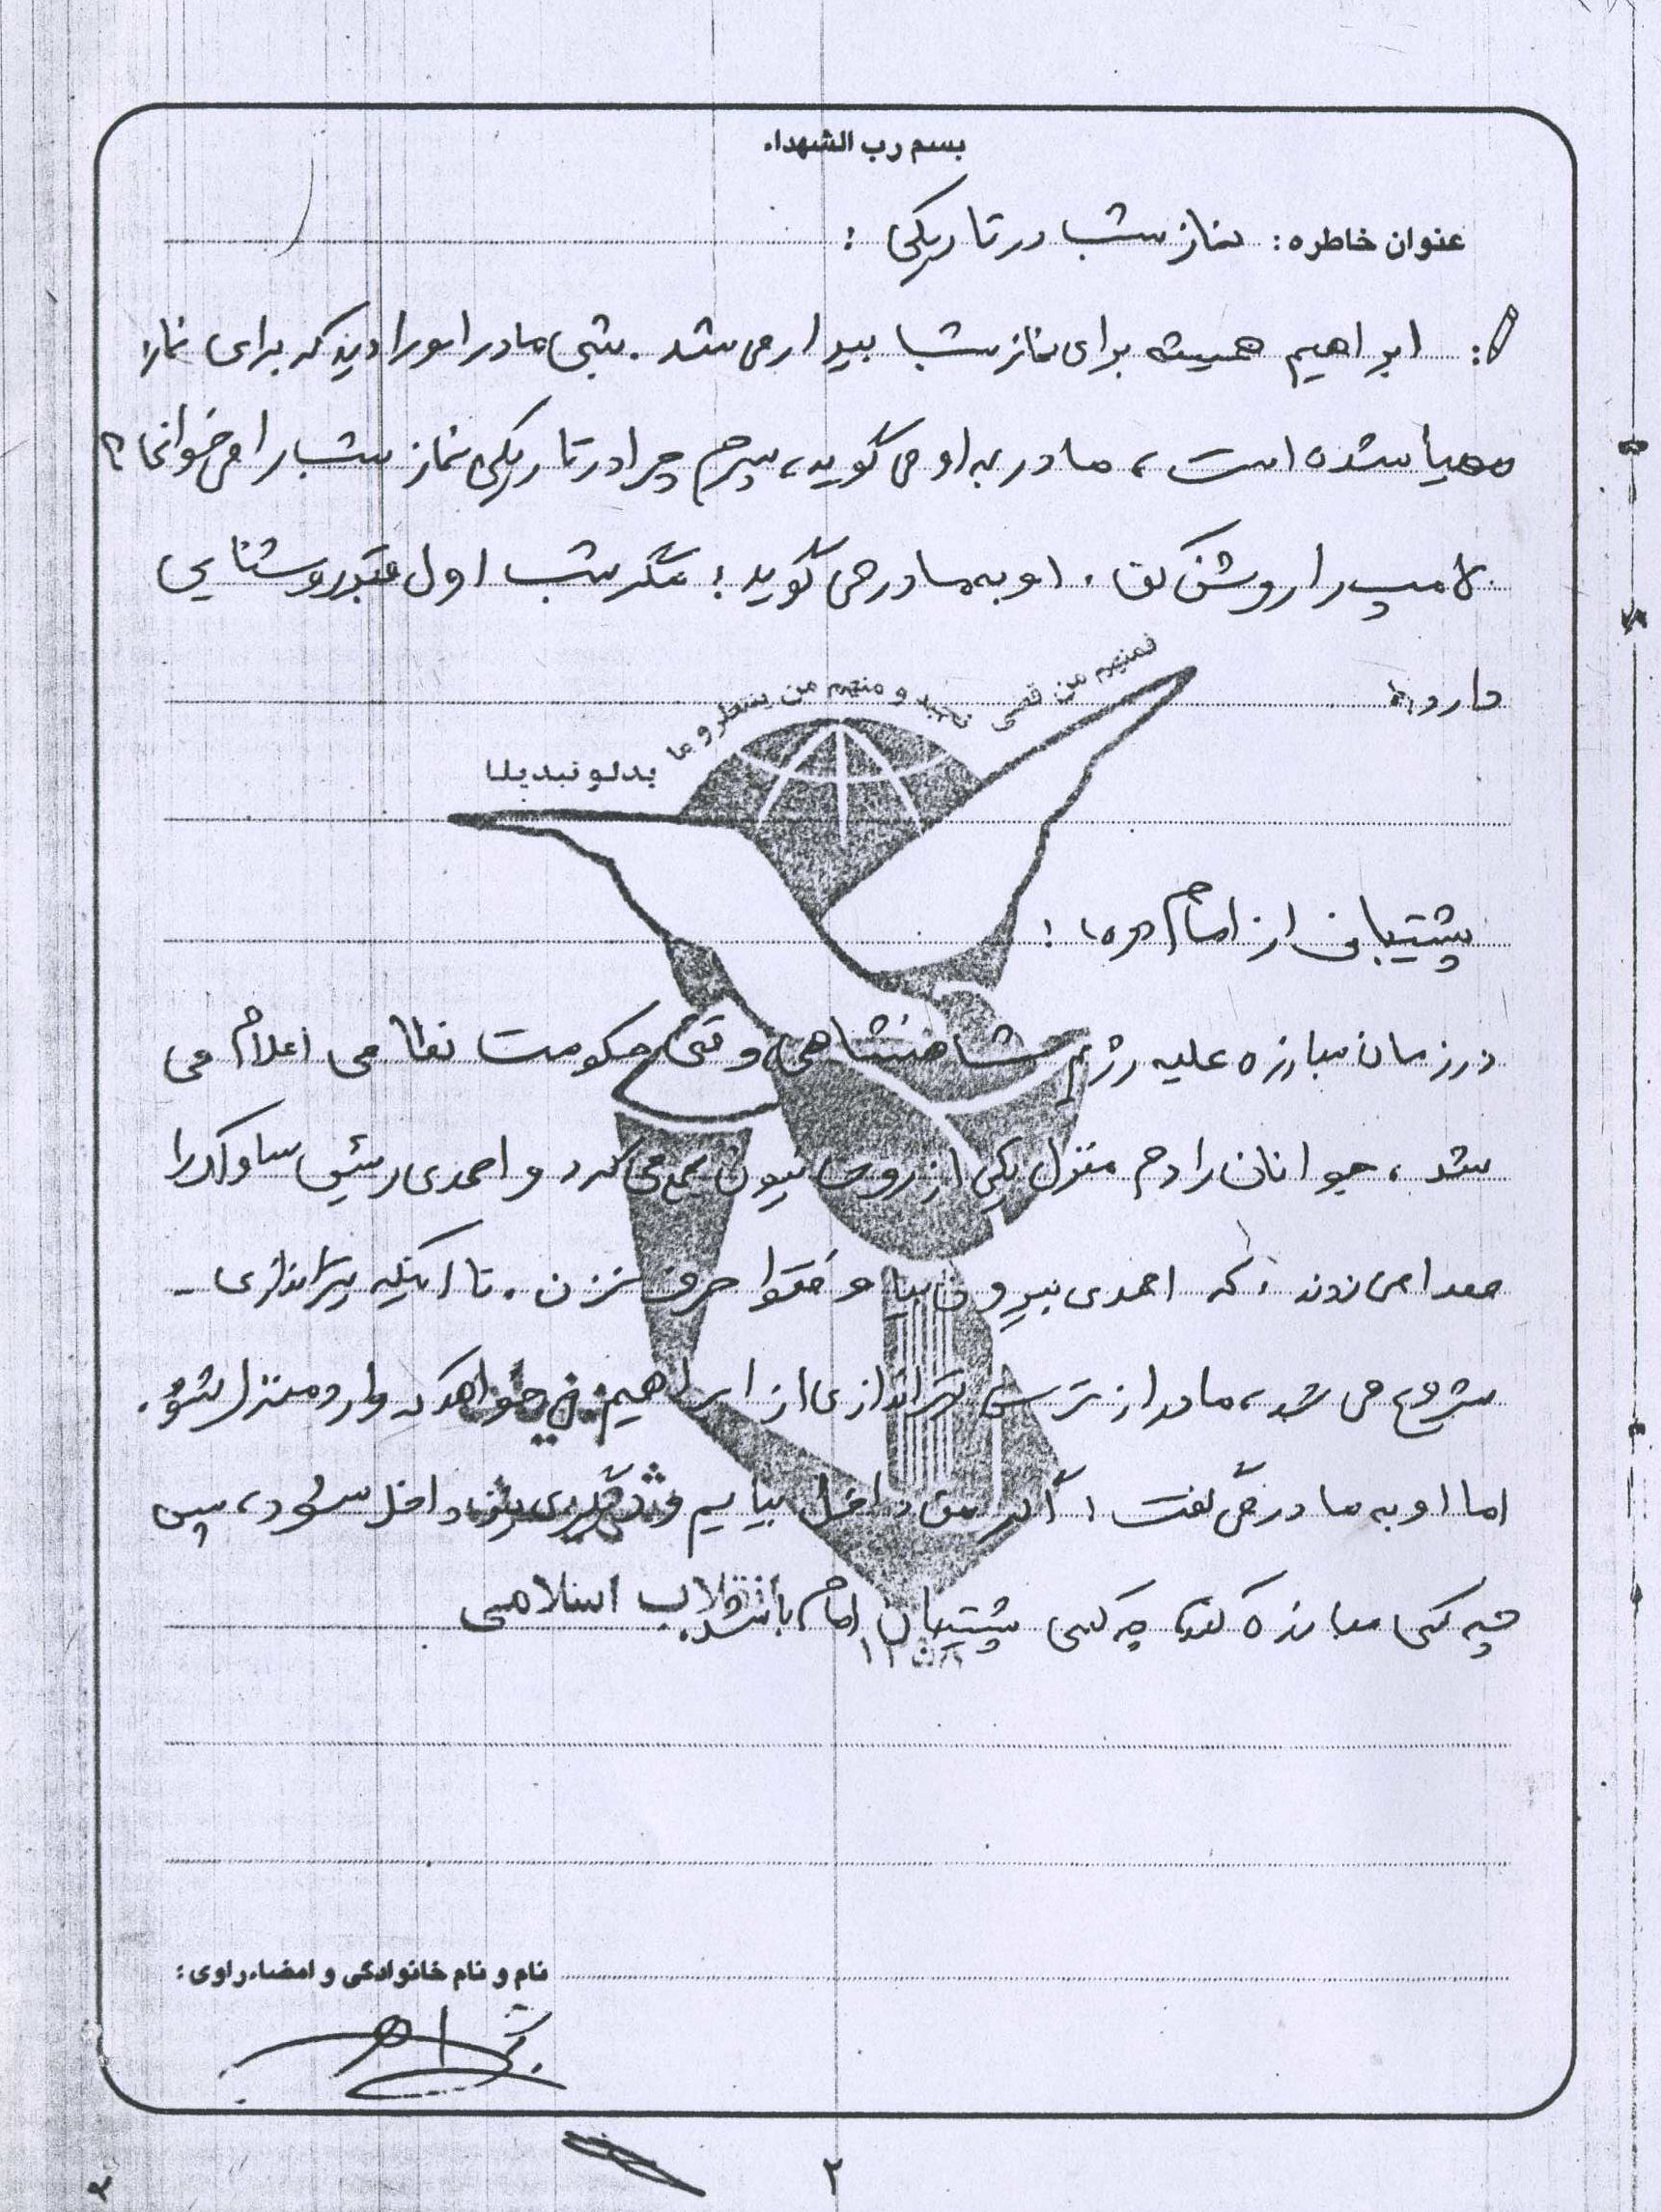 بسم رب الشهداء
عنوان خاطره: نماز شب در تاریکی :
: ابراهیم همیشه برای نماز شب بیدار می شد. شبی مادر او را دید که برای نماز
مهیا شده است، مادر به او می گوید، پسرم چرا در تاریکی نماز شب را می خوانی؟
لامپ را روشن کن. او به مادر می گوید: مگر شب اول قبر روشنایی
دارد؟
فمنهم من قضی نحبه و منهم من ینتظر و ما
بدلو تبدیلا
پشتیبانی از امام (ره):
در زمان مبارزه علیه رژیم شاهنشاهی وقتی حکومت نظامی اعلام می
شد، جوانان را دم منزل یکی از روحانیون جمع می کرد و احمدی رئیس ساواک را
صدا می زدند که احمدی بیرون بیا و حرف نزن. تا اینکه تیراندازی
شروع می شد، مادر از ترس تیراندازی از ابراهیم می خواهد که وارد منزل شود.
اما او به مادر می گفت، اگر من داخل بیایم و دیگری داخل شود، پس
چه کسی مبارزه کند، چه کسی پشتیبان امام باشد.
انقلاب اسلامی
۱۳۵۸
نام و نام خانوادگی و امضاء راوی:
۲
۲